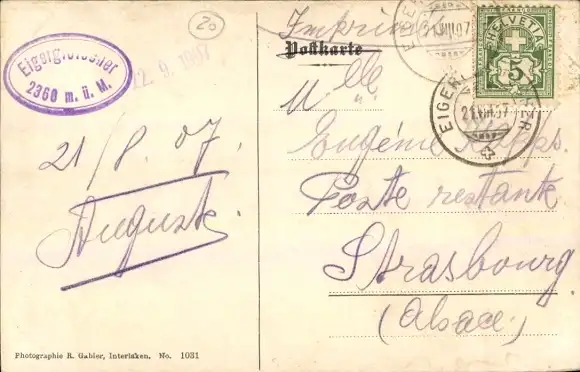 20
Imprimé
Postkarte
Eigergletscher
2360 m. ü. M.
22. 9. 1907
HELVETIA
5
21.VIII.07
EIGERGLETSCHER
21.VIII.07
21/8. 07.
Auguste
Mlle
Eugénie Kapps.
Poste restante
Strasbourg
(Alsace)
Photographie R. Gabler, Interlaken. No. 1031